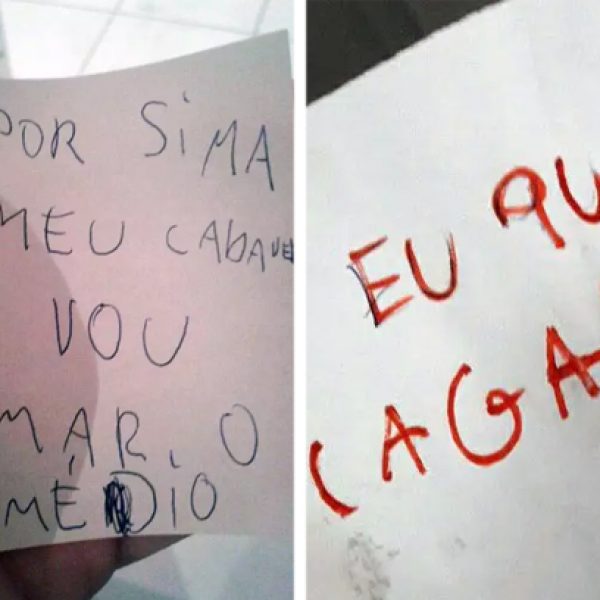 POR SIMA
MEU CADAVE
VOU
MAR, O
MÉDIO
EU QU
CAGA